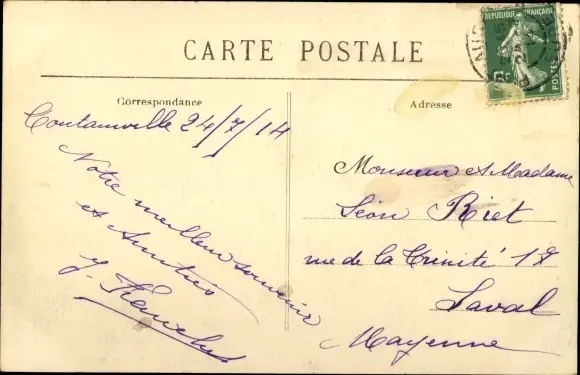 CARTE POSTALE
REPUBLIQUE FRANÇAISE
5c
POSTES
Correspondance
Adresse
Coutainville 24/7/14
Notre meilleur souvenir
et Amitiés
Monsieur et Madame
Léon Riet
rue de la Trinité 18
Laval
Mayenne